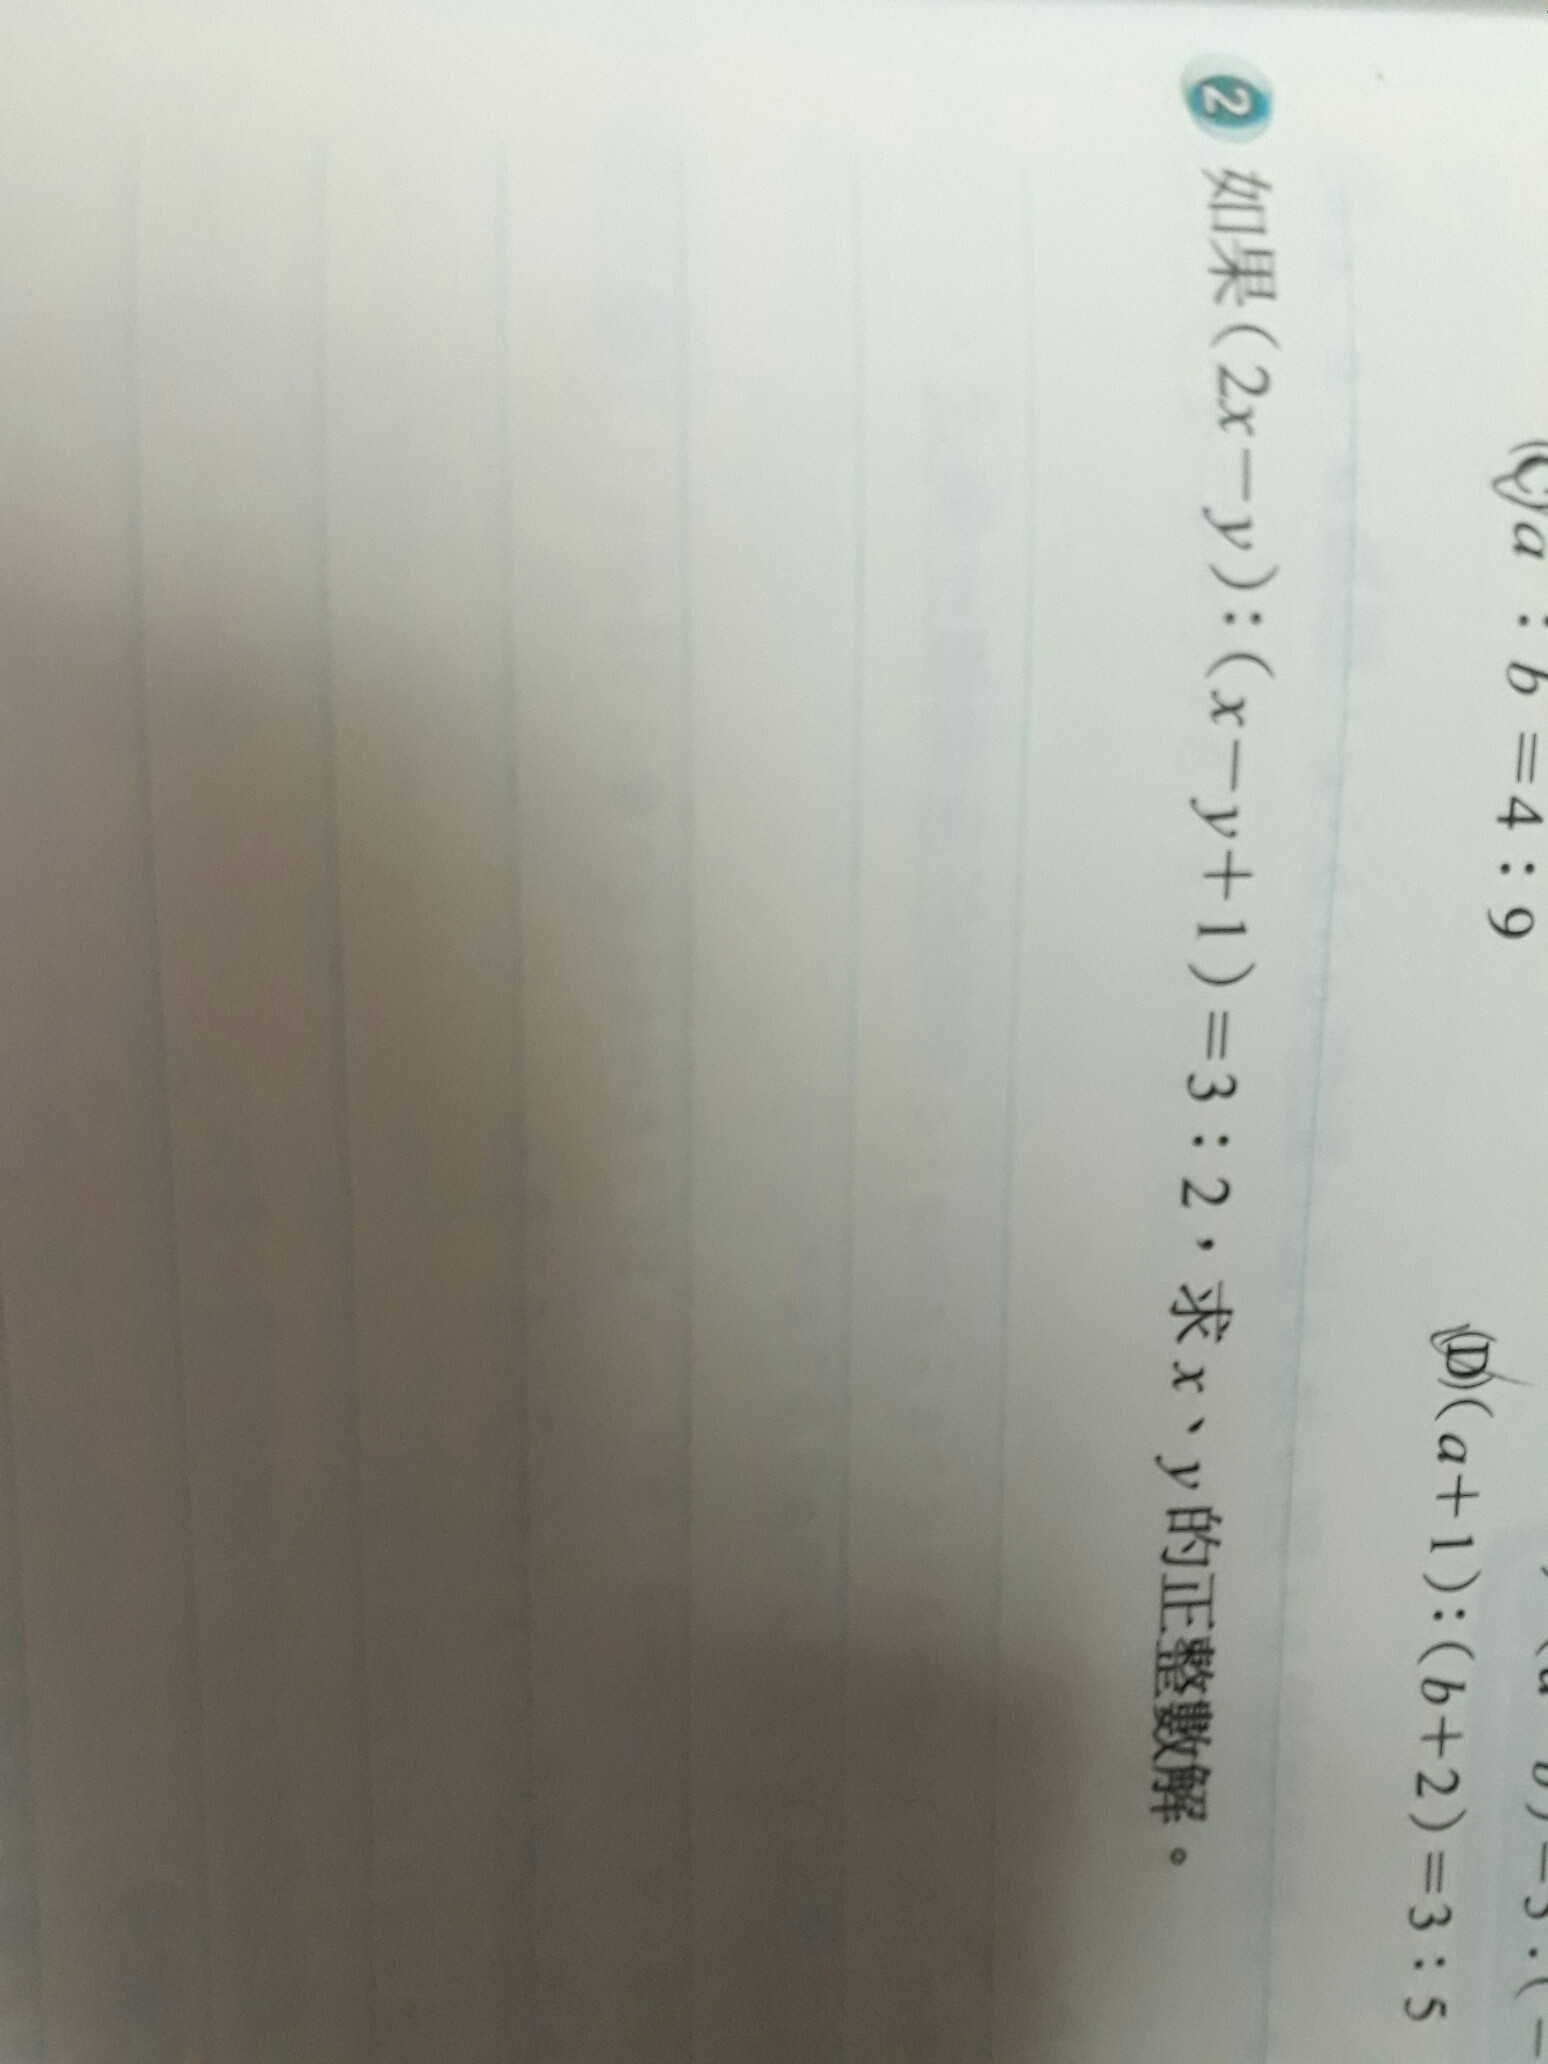 (C) a : b = 4 : 9
(D) (a+1):(b+2)=3 : 5
2 如果(2x－y):(x－y+1)=3 : 2,求 x、y 的正整數解。